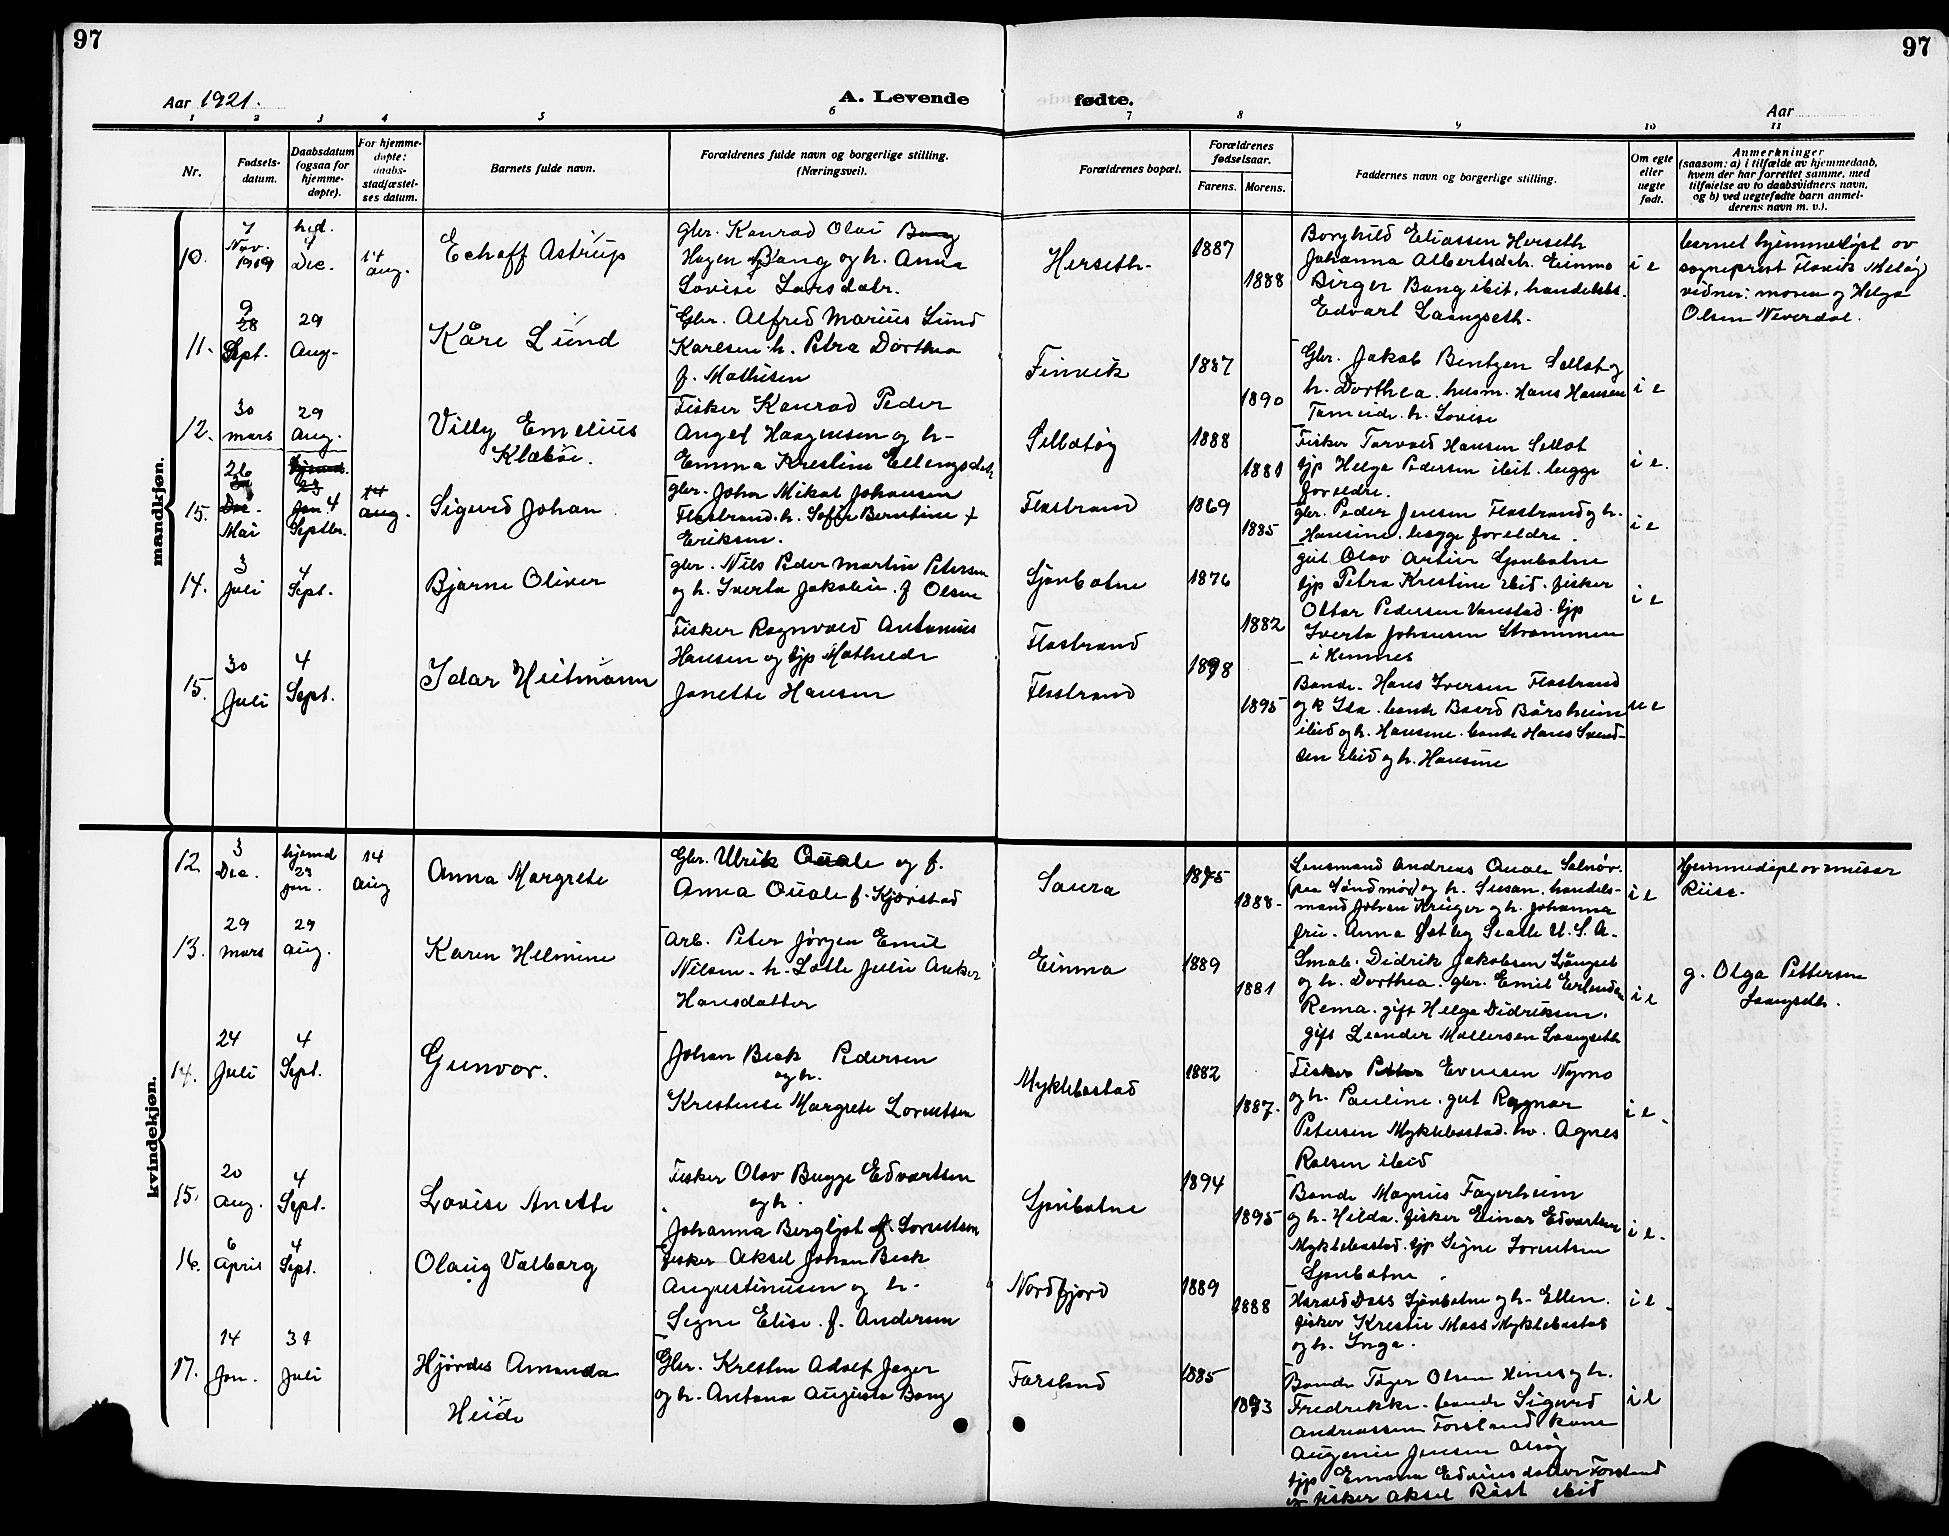 97
97
Aar 1921.
A. Levende
fødte.
Aar
1 2 3 4 5 6 7 8 9 10 11
Nr.
Fødsels-
datum.
Daabsdatum
(ogsaa for
hjemme-
døpte).
For hjemme-
døpte:
daabs-
stadfæstel-
ses datum.
Barnets fulde navn.
Forældrenes fulde navn og borgerlige stilling.
(Næringsvei).
Forældrenes bopæl.
Forældrenes
fødselsaar.
Farens. Morens.
Faddernes navn og borgerlige stilling.
Om egte
eller
uegte
født.
Anmerkninger
(saasom: a) i tilfælde av hjemmedaab,
hvem der har forrettet samme, med
tilføielse av to daabsvidners navn,
og b) ved uegtefødte barn anmel-
derens navn m. v.).
mandkjøn.
10.
7
Nov.
1919
4
Dec.
14
aug.
Echoff Astrup
gbr. Konrad Olai Bang
Hagen Bang og h. Anna
Lovise Larsdatr.
Herseth
1887
1888
Borghild Eliassen Herseth
Johanna Albertsdatr. Einmo
Birger Bang ibit, handelsbt.
Edvart Langseth.
i e
barnet hjemmedøpt av
sogneprest Flovik Meløy
vidner: moren og Helga
Olsen Neverdal.
11.
9
28
Sept.
29
Aug.
Kåre Lund
Gbr. Alfred Marius Lund
Karlsen h. Petra Dorthea
f. Mathisen
Finvik
1887
1890
Gbr. Jakob Bentzen Selbot og
h. Dorthea. husm. Hans Hansen
h. Lovise
i e
12.
30
mars
29
Aug.
Villy Emelius
Klæboe.
Fisker Konrad Peder
Angel Haagensen og h.
Emma Kristine Ellingsdatr
Selbotøy
1888
1881
Fisker Torvald Hansen Selbot
tjp Helga Pedersen ibit. begge
foreldre.
i e.
15.
26
Dec.
Mai
hjemd.
23
Jan. 4
Septbr.
14
aug.
Sigurd Johan
gbr. Johan Mikal Johansen
Flostrand. h. Sofie Berntine f
Eriksen.
Flostrand
1869
1885
gbr. Peder Jensen Flostrand og h.
Hansine. begge foreldre.
i e
14.
3
Juli
4
Sept.
Bjarne Oliver
gbr. Nils Peder Martin Petersen
og h. Iverta Jakobin. f Olsen
Sjonbotne
1876
1882
gut Olav Artur Sjonbotne
tjp Petra Kristine ibid. fisker
Oltar Pedersen Vanstad. tjp
Iverta Johansen Strømmen
i Hemnes
i e
15.
30
Juli
4
Sept.
Idar Heitmann
Fisker Ragnvald Antonius
Hansen og tjp Mathilde
Janette Hansen
Flostrand
Flostrand
1898
1895
Bonde. Hans Iversen Flostrand
og k Ida. bonde Baard Bårsheim
ibid og h. Hansine. bonde Hans Svend-
sen ibid og h. Hansine
u e
kvindekjøn.
12
3
Dec.
hjemd
23
jan.
14
aug
Anna Margrete
Gbr. Ulrik Quale og f.
Anna Quale f. Kjørstad
Saura
1875
1888
Lensmand Andreas Quale Selnør.
(paa Søndmør) og h. Susan. handels-
mand Johan Krüger og h. Johanna
fru. Anna Østby Seatle U. S. A.
i e
Hjemmedøpt av
Riise.
13.
29
mars
29
aug.
Karen Helmine
Arb. Peter Jørgen Emil
Nilsen. h. Lotte Julie Anker
Hansdatter
Einmo
1889
1881
Småb. Didrik Jakobsen Långset
og h. Dorthea. gbr. Emil Erlandsen
Rema. gift Helga Didriksen.
gift Leander Mollersen Langseth
i e
g. Olga Pettersen
Langseth.
14.
24
Juli
4
Sept.
Gunvor.
Johan Beck Pedersen
og h.
Krestense Margrete Lorentsen
Myklebostad
1882
1887
Fisker Peter Evensen Nymo
og h. Pauline. gut Ragnar
Petersen Myklebostad. hv. Agnes
Rolsen ibid
i e
15.
20
Aug.
4
Sept.
Lovise Anette
Fisker Olav Bugge Edvartsen
og h.
Johanna Bergljot f. Lorentsen
Sjonbotne
1894
1895
Bonde Magnus Fagerheim
og h. Hilda. fisker Einar Edvartsen
Myklebostad. tjp Signe Lorentsen
Sjonbotne
i e.
16.
6
April
4
Sept.
Olaug Valborg
Fisker Aksel Johan Beck
Augustinusen og h.
Signe Elise. f. Andersen
Nordfjord
1889
1888
Harald Dass Sjonbotne og h. Ellen.
fisker Krestie Moss Myklebostad
og h. Inga.
i e
17.
14
Jan.
31
Juli
Hjørdes Amanda
Heide
Gbr. Kresten Adolf Jæger
og h. Antona Augusta Bang
Forsland
1885
1893
Bonde Tøger Olsen og h.
Fredrikke. bonde Sigurd
Andreassen Forsland kone
Augenie Jensen
tjp Emma Edvinsdatter Forsland
og fisker Aksel Røst ibid
i e